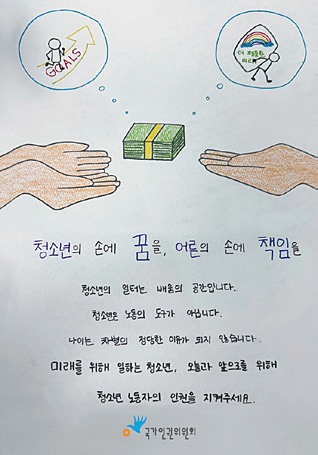 GOALS
더 평등한
미래
청소년의 손에 꿈을, 어른의 손에 책임을
청소년의 일터는 배움의 공간입니다.
청소년은 노동의 도구가 아닙니다.
나이는 차별의 정당한 이유가 되지 않습니다.
미래를 위해 일하는 청소년, 오늘과 앞으로를 위해
청소년 노동자의 인권을 지켜주세요.
국가인권위원회